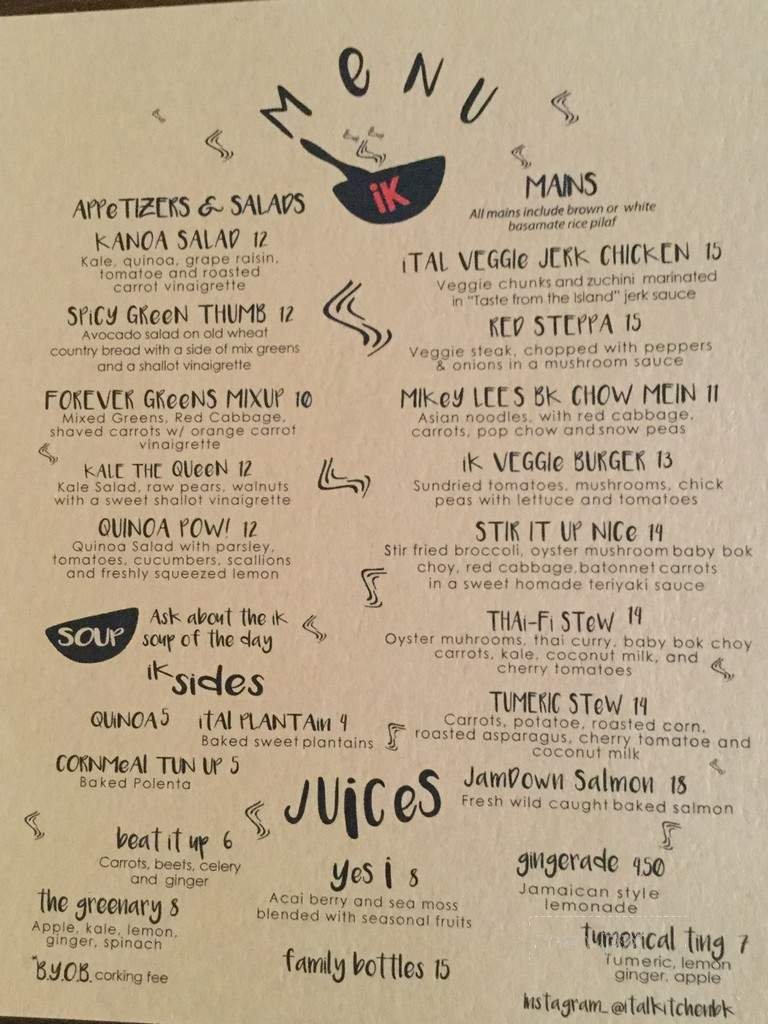 MENU
iK
APPETIZERS & SALADS
KANOA SALAD 12
Kale, quinoa, grape raisin,
tomatoe and roasted
carrot vinaigrette
SPiCY GReeN THUMB 12
Avocado salad on old wheat
country bread with a side of mix greens
and a shallot vinaigrette
FOREVER GReeNS MIXUP 10
Mixed Greens, Red Cabbage,
shaved carrots w/ orange carrot
vinaigrette
KALE THE QUeeN 12
Kale Salad, raw pears, walnuts
with a sweet shallot vinaigrette
QUINOA POW! 12
Quinoa Salad with parsley,
tomatoes, cucumbers, scallions
and freshly squeezed lemon
SOUP
Ask about the ik
soup of the day
iK sides
QUiNOA 5 iTAl PLANTAiN 4
Baked sweet plantains
CORNMeAl TUN UP 5
Baked Polenta
MAINS
All mains include brown or white
basamate rice pilaf
iTAL VEGGIe JERK CHICKEN 15
Veggie chunks and zuchini marinated
in "Taste from the Island" jerk sauce
RED STEPPA 15
Veggie steak, chopped with peppers
& onions in a mushroom sauce
MIKeY LEES BK CHOW MEIN 11
Asian noodles, with red cabbage,
carrots, pop chow and snow peas
iK VEGGIe BURGER 13
Sundried tomatoes, mushrooms, chick
peas with lettuce and tomatoes
STIR IT UP NICe 14
Stir fried broccoli, oyster mushroom baby bok
choy, red cabbage, batonnet carrots
in a sweet homade teriyaki sauce
THAi-Fi STeW 14
Oyster muhrooms, thai curry, baby bok choy
carrots, kale, coconut milk, and
cherry tomatoes
TUMERIC STeW 14
Carrots, potatoe, roasted corn,
roasted asparagus, cherry tomatoe and
coconut milk
JamDown Salmon 18
Fresh wild caught baked salmon
JUiCeS
beat it up 6
Carrots, beets, celery
and ginger
the greenary 8
Apple, kale, lemon,
ginger, spinach
*B.Y.O.B. corking fee
yes i 8
Acai berry and sea moss
blended with seasonal fruits
family bottles 15
gingerade 4.50
Jamaican style
lemonade
tumerical ting 7
Tumeric, lemon
ginger, apple
instagram_@italkitchenbk